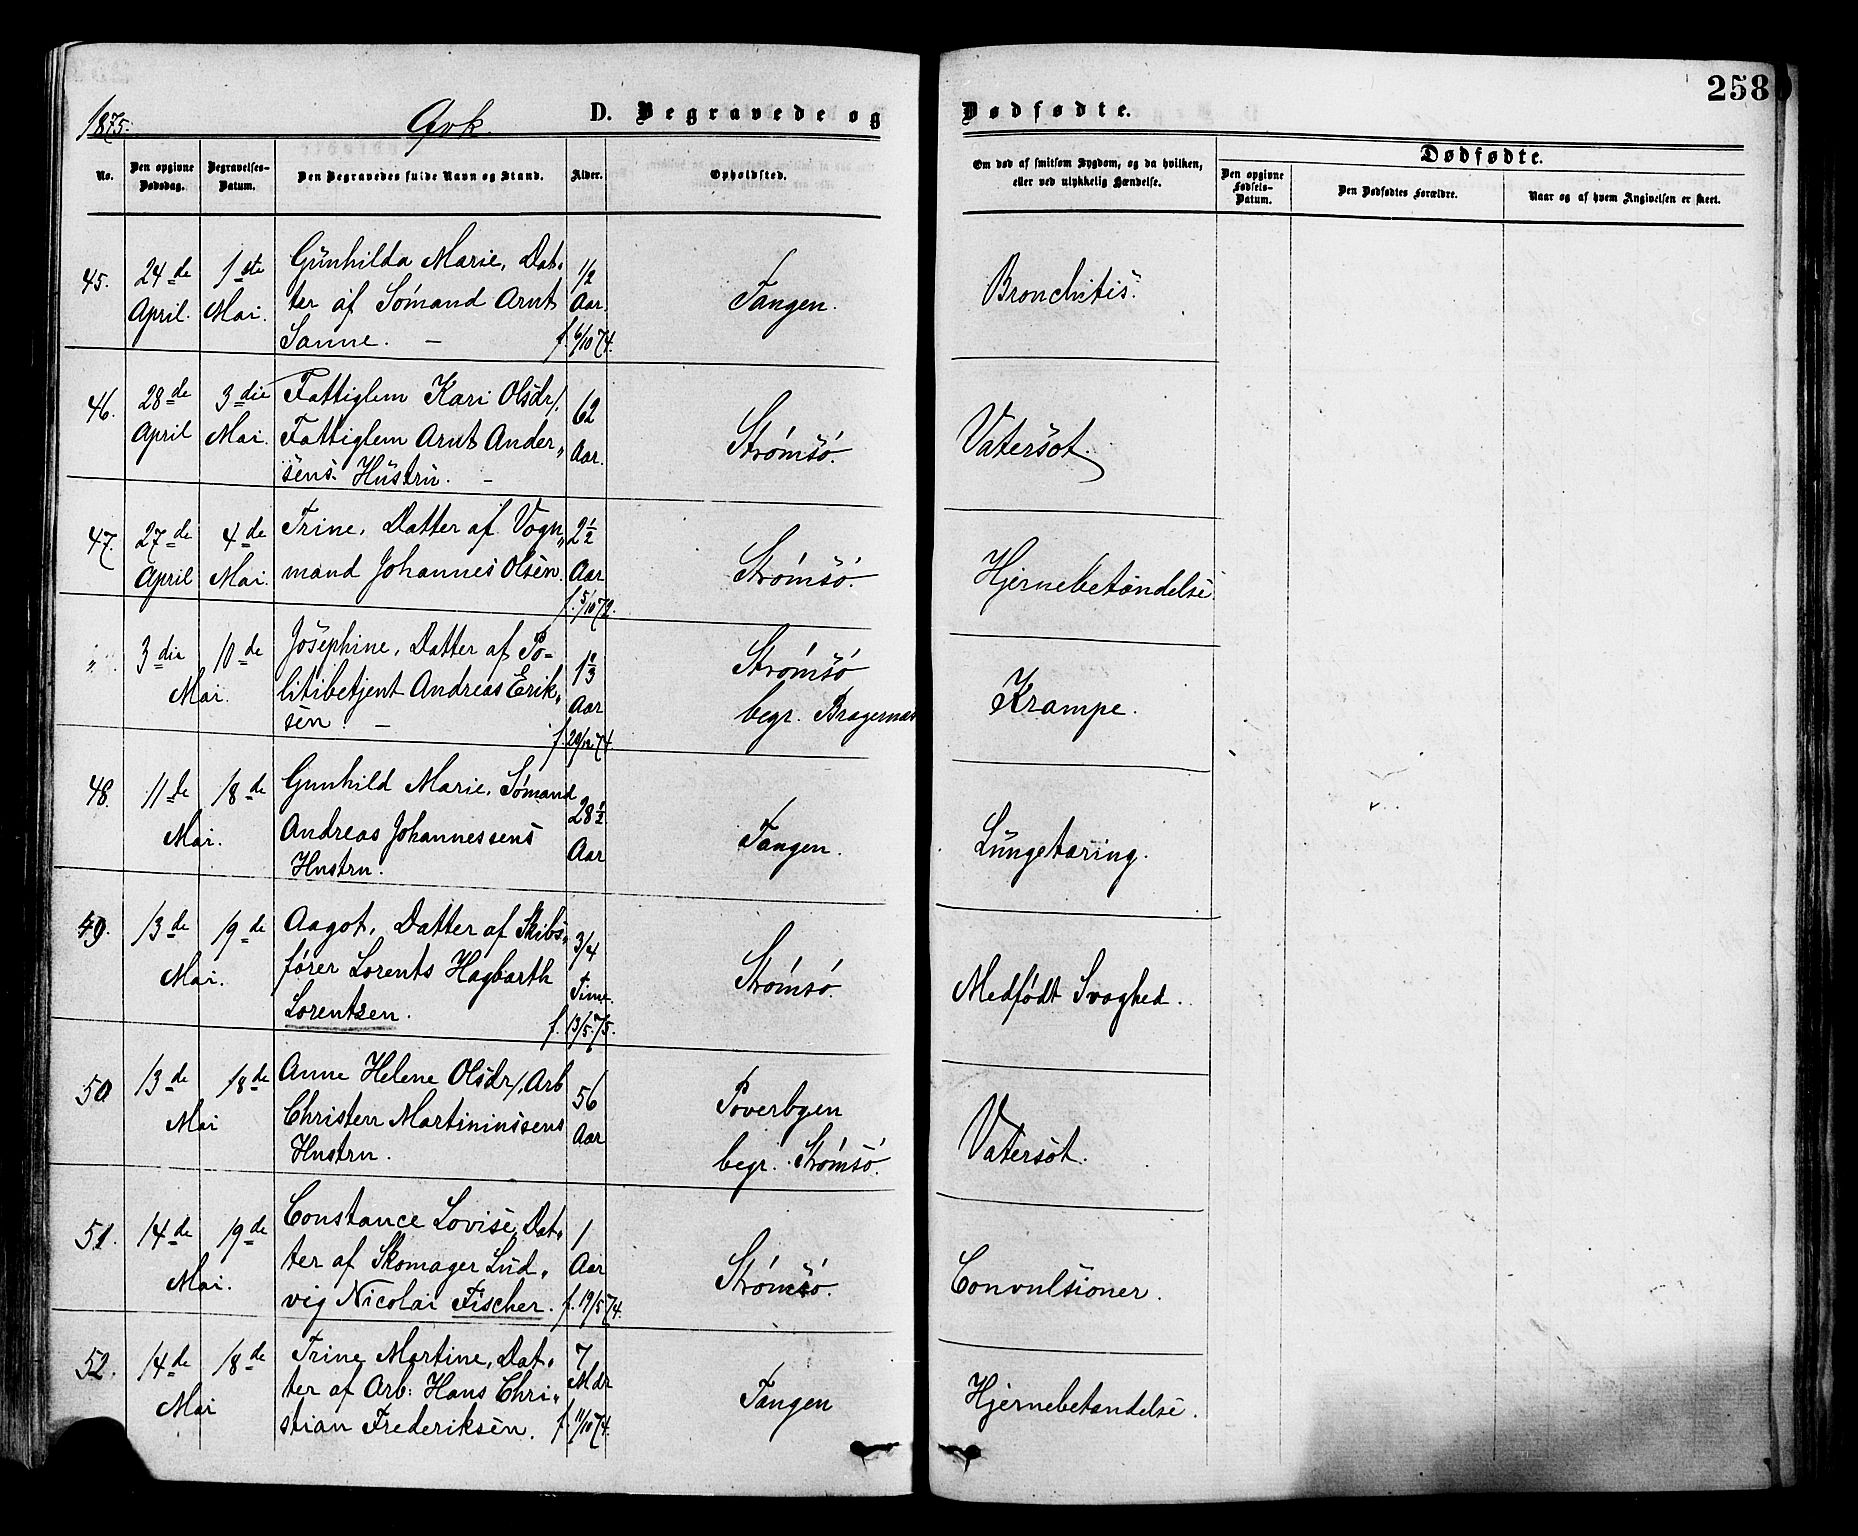 258
1875.
Qvk.
D. Begravede og Dødfødte.
No.
Den opgivne Dødsdag.
Begravelses-Datum.
Den Begravedes fulde Navn og Stand.
Alder.
Opholdsted.
Om død af smitsom Sygdom, og da hvilken, eller ved ulykkelig Hændelse.
Dødfødte.
Den opgivne Fødsels-Datum.
Den Dødfødtes Forældre.
Naar og af hvem Angivelsen er skeet.
45.
24de April.
1ste Mai.
Gunhilda Marie, Dat-
ter af Sømand Arnt
Sanne. —
1/2 Aar. f. 6/10 74.
Tangen.
Bronchitis.
46.
28de April
3die Mai.
Fattiglem Kari Olsdr/.
Fattiglem Arnt Ander-
sens Hustru. —
62 Aar.
Strømsø.
Vatersot.
47.
27de April
4de Mai.
Trine, Datter af Vogn-
mand Johannes Olsen.
2 1/2 Aar f. 5/10 72.
Strømsø.
Hjernebetændelse
"
3die
10de
Mai.
Josephine, Datter af Po-
litibetjent Andreas Erik-
sen. —
Aar
Strømsø
begr. Bragernæs
Krampe.
48.
11de
18de
Mai.
Gunhild Marie, Sømand
Andreas Johannessens
Hustru.
28 1/2 Aar
Tangen.
Lungetæring.
49.
13de
19de
Mai.
Aagot, Datter af Skibs-
fører Lorents Hagbarth
Lorentzen.
3/4 Time. f. 13/5 75.
Strømsø.
Medfødt Svaghed.
50
13de
18de
Mai
Anne Helene Olsdr/, Arb
Christen Martininssens
Hustru.
56 Aar
Poverbyen
begr. Strømsø.
Vatersot.
51.
14de
19de
Mai.
Constance Lovise, Dat-
ter af Skomager Lud-
vig Nicolai Fischer.
1 Aar f. 19/5 74.
Strømsø.
Convulsioner.
52.
14de
18de
Mai
Trine Martine, Dat-
ter af Arb: Hans Chri-
stian Frederiksen.
7 Mdr f. 11/10 74.
Tangen
Hjernebetændelse.